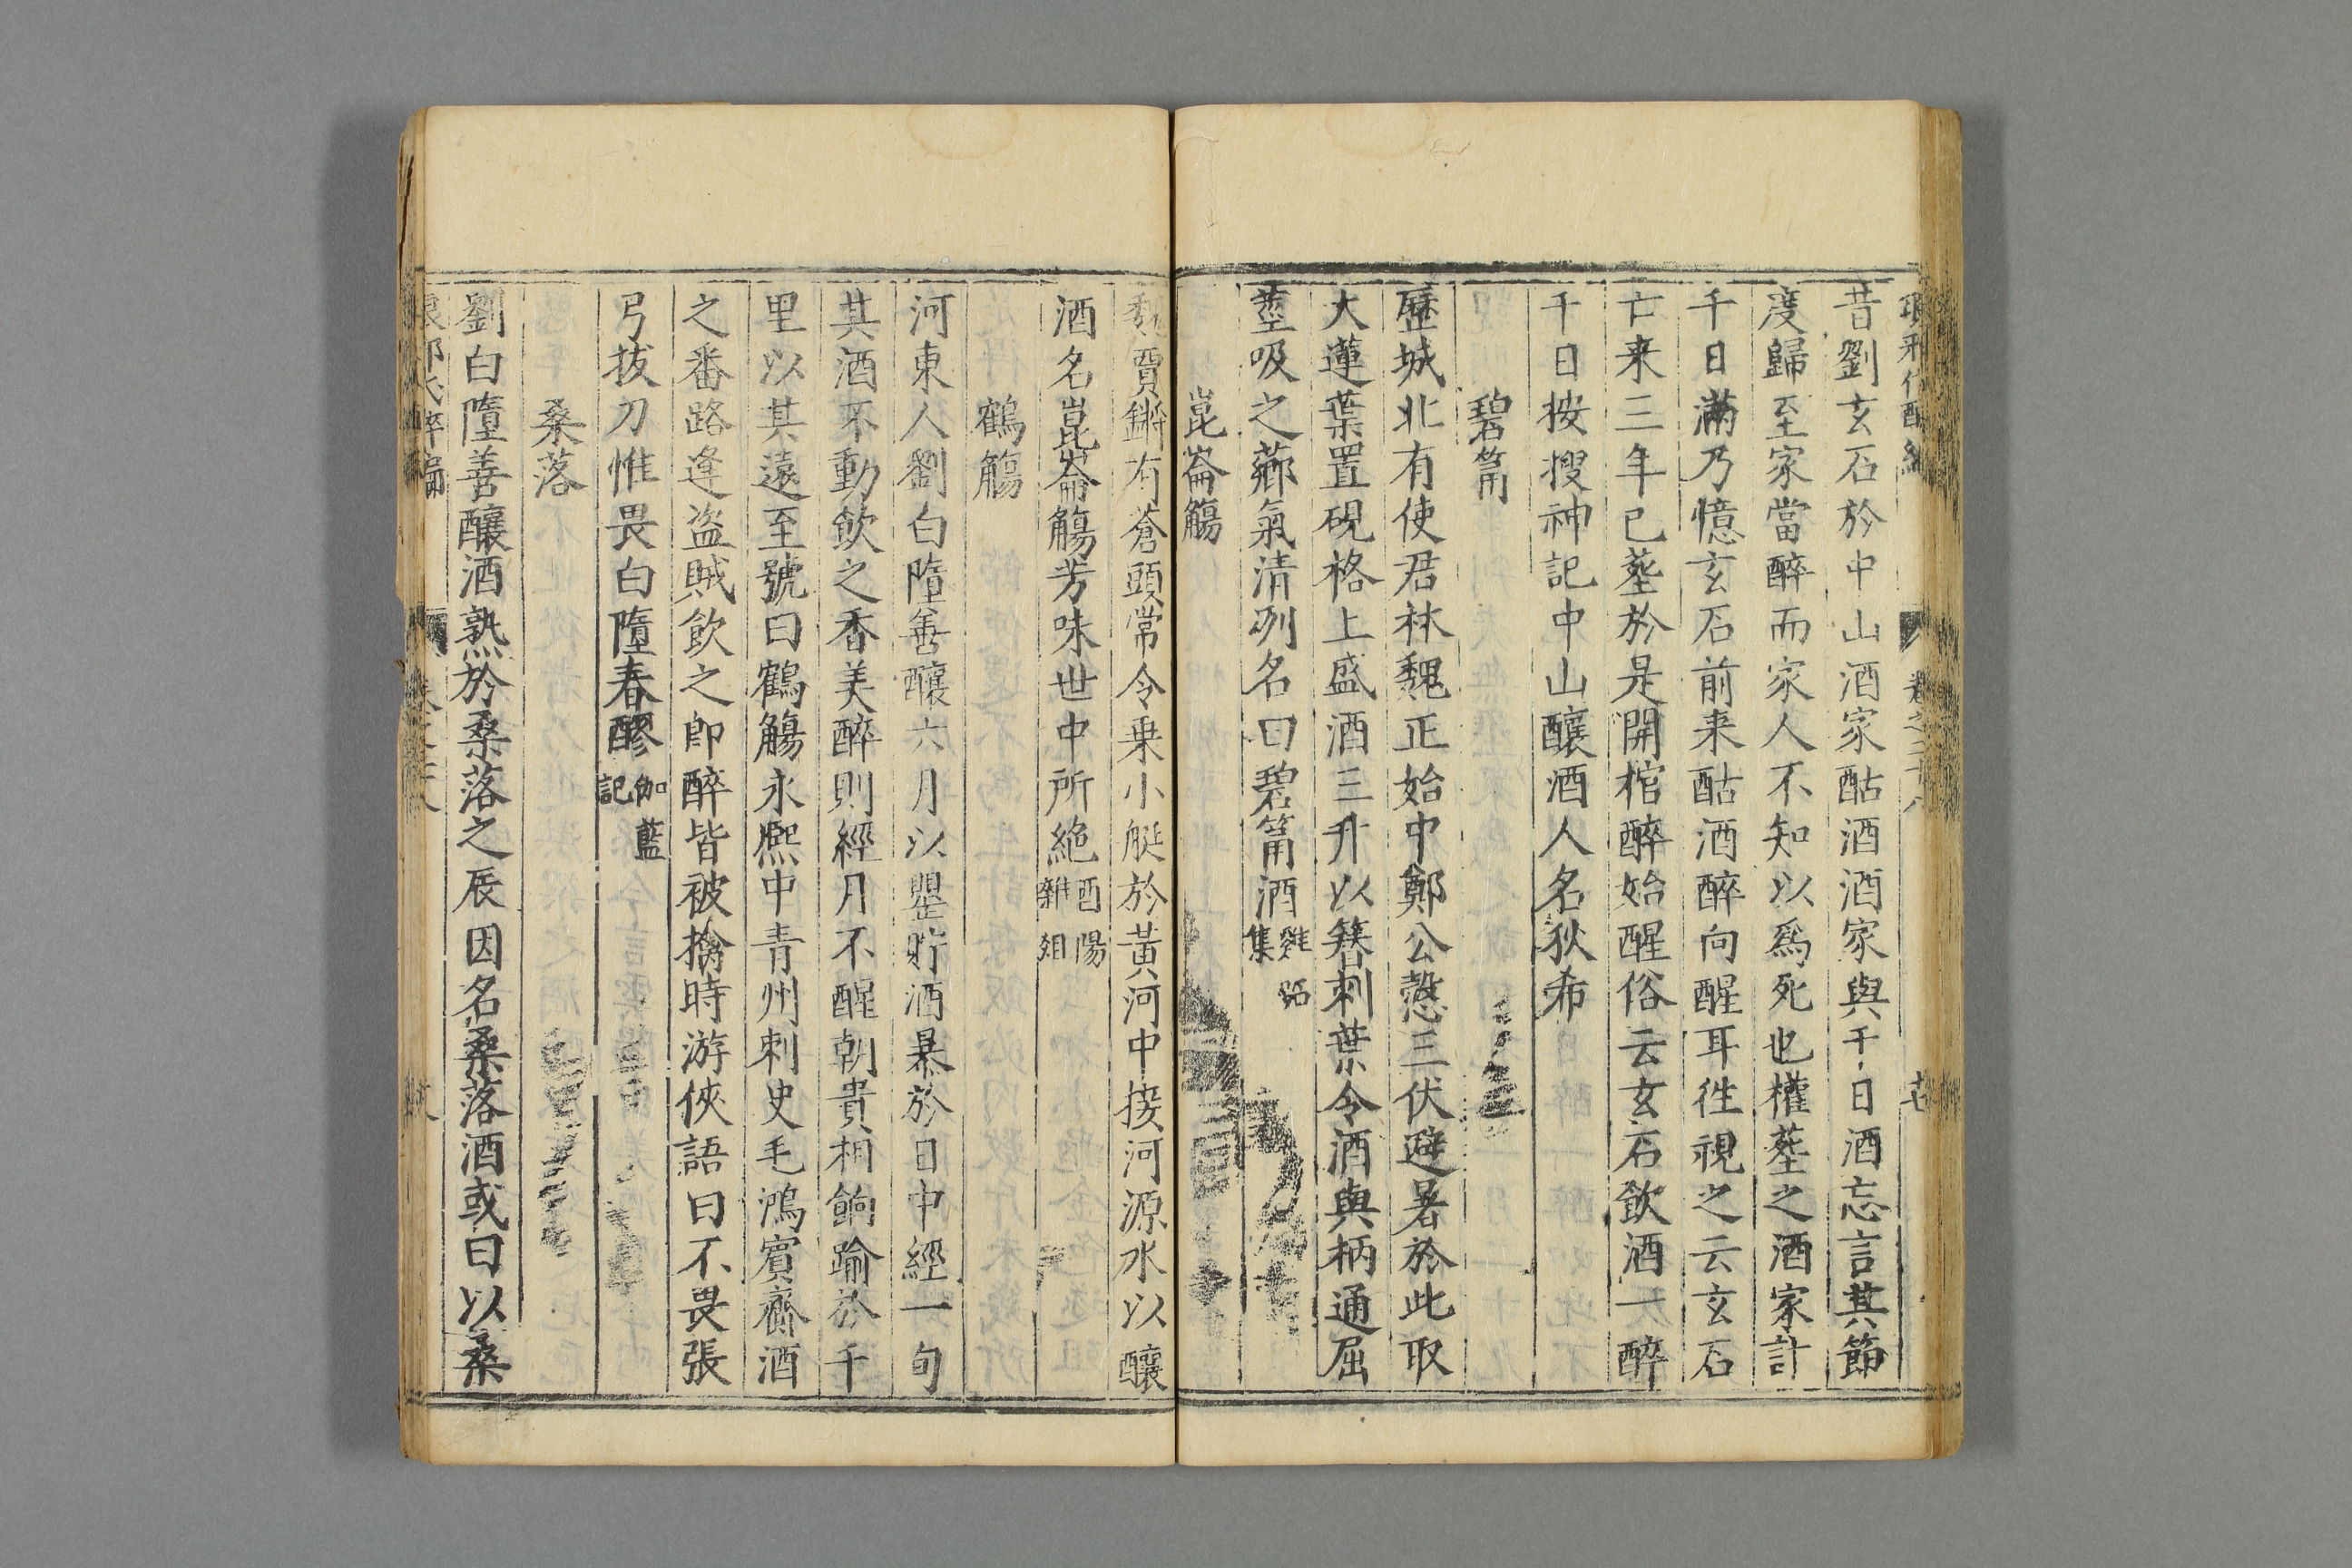 昔劉玄石於中山酒家酤酒酒家與千日酒忘言其節
度歸至家當醉而家人不知以爲死也權塟之酒家計
千日滿乃憶玄石前来酤酒醉向醒耳徃視之云玄石
亡来三年已塟於是開棺醉始醒俗云玄石飲酒一醉
千日按搜神記中山釀酒人名狄希
碧筩
歷城北有使君林魏正始中鄭公慤三伏避暑於此取
大蓮葉置硯格上盛酒三升以簪刺葉令酒與柄通屈
莖吸之薌氣清冽名曰碧筩酒 雞跖集
崑崙觴
魏賈鏘有蒼頭常令乗小艇於黃河中接河源水以釀
酒名崑崙觴芳味世中所絶 酉陽雜俎
鶴觴
河東人劉白墮善釀六月以罌貯酒暴於日中經一旬
其酒不動飲之香美醉則經月不醒朝貴相餉踰於千
里以其遠至號曰鶴觴永熈中青州刺史毛鴻賓齎酒
之番路逢盗賊飲之即醉皆被擒時游俠語曰不畏張
弓拔刀惟畏白墮春醪 伽藍記
桑落
劉白墮善釀酒熟於桑落之辰因名桑落酒或曰以桑